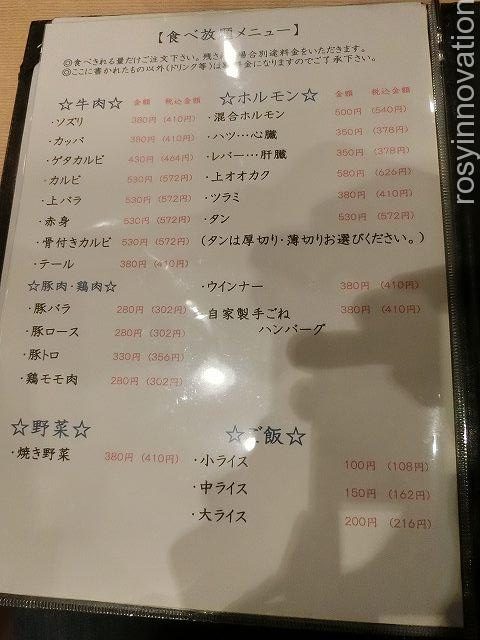 【食べ放題メニュー】
◎食べきれる量だけご注文下さい。残さ 場合別途料金をいただきます。
◎ここに書かれたもの以外(ドリンク等)は 料金になりますのでご了承下さい。
☆牛肉☆ 金額 税込金額
・ソズリ 380円 (410円)
・カッパ 380円 (410円)
・ゲタカルビ 430円 (464円)
・カルビ 530円 (572円)
・上バラ 530円 (572円)
・赤身 530円 (572円)
・骨付きカルビ 530円 (572円)
・テール 380円 (410円)
☆ホルモン☆ 金額 税込金額
・混合ホルモン 500円 (540円)
・ハツ…心臓 350円 (378円)
・レバー…肝臓 350円 (378円)
・上オオカク 580円 (626円)
・ツラミ 380円 (410円)
・タン 530円 (572円)
(タンは厚切り・薄切りお選びください。)
☆豚肉・鶏肉☆
・豚バラ 280円 (302円)
・豚ロース 280円 (302円)
・豚トロ 330円 (356円)
・鶏モモ肉 280円 (302円)
・ウインナー 380円 (410円)
・自家製手ごね 380円 (410円)
ハンバーグ
☆野菜☆
・焼き野菜 380円 (410円)
☆ご飯☆
・小ライス 100円 (108円)
・中ライス 150円 (162円)
・大ライス 200円 (216円)
rosyinnovation